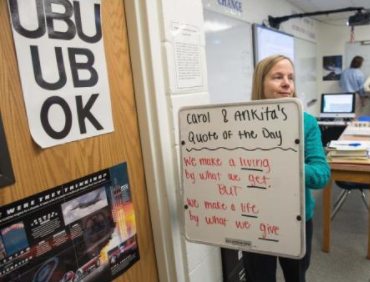 UBU
UB
OK
WERE THEY THINKING
CHANGE
Carol & Ankita's
Quote of the Day
We make a living
by what we get.
BUT
we make a life
by what we give